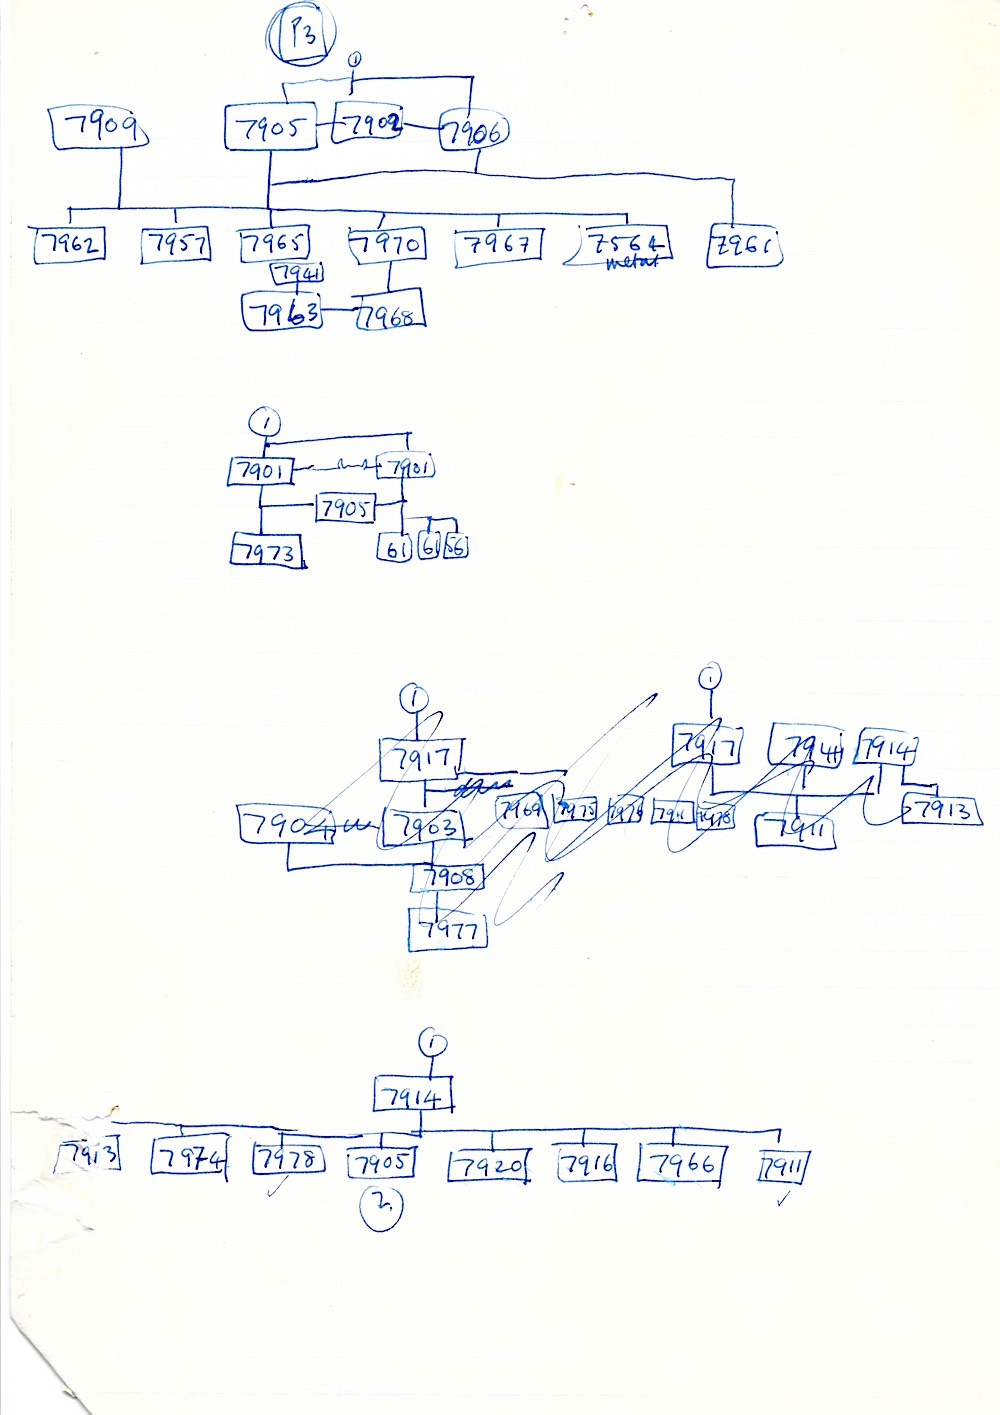 P3
1
7909 7905 7902 7906
7962 7957 7965 7970 7967 7564 7961
metal
7941
7963 7968
1
7901 7901
7905
7973 61 61 56
1
1
7917 7917 7944 7914
7904 7903 7969 7975 7976 7911 7978 7911 7913
7908
7977
1
7914
7913 7974 7978 7905 7920 7916 7966 7911
✓ 2 ✓